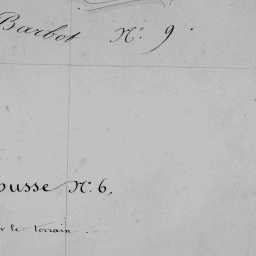 Barbot N°. 9.
ousse N°. 6.
r le terrain.